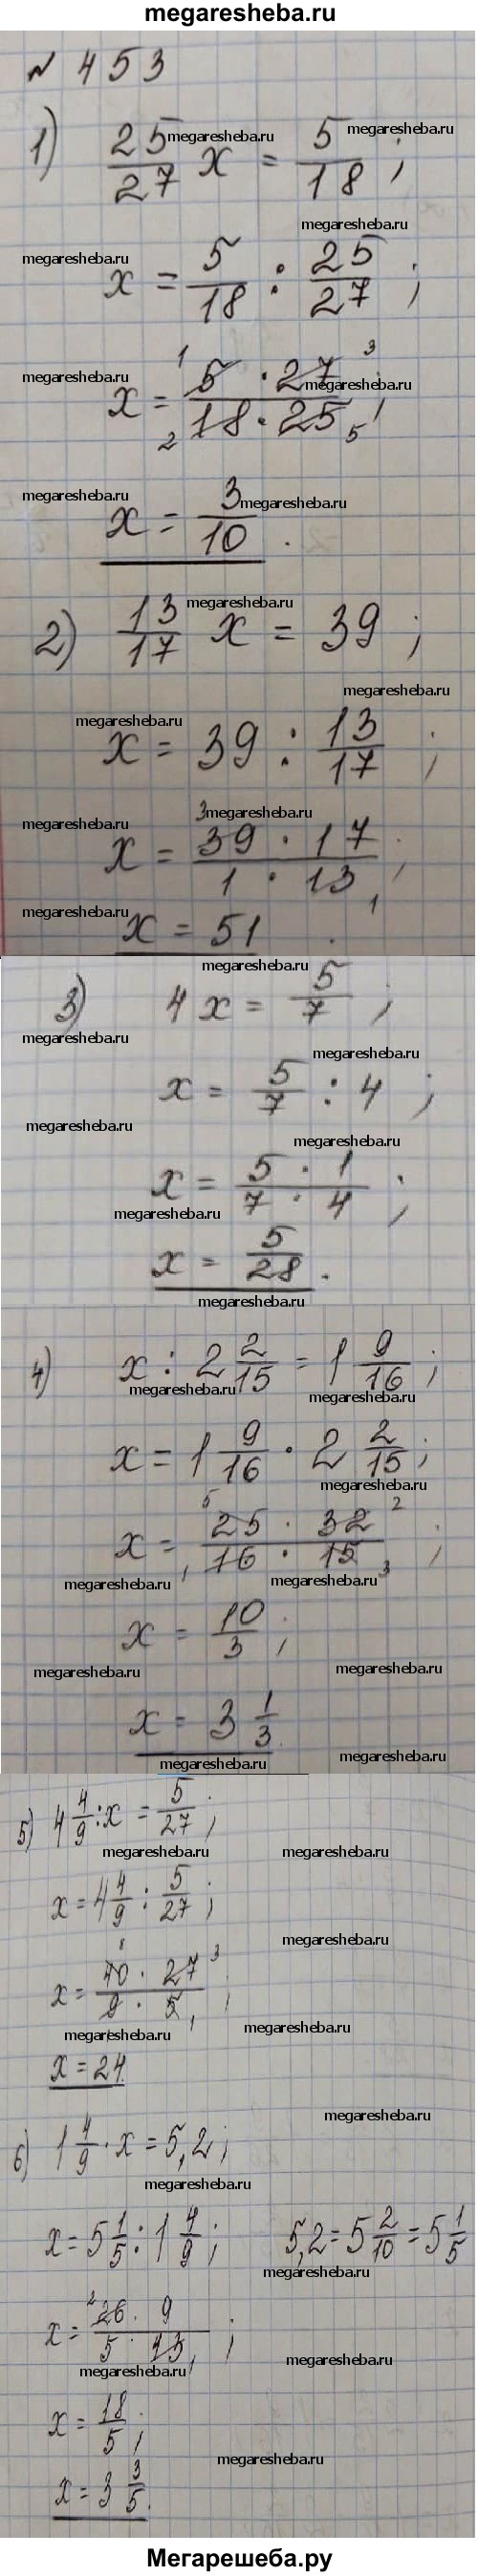 megaresheba.ru
№ 453
1) 25/27 x = 5/18 ;
x = 5/18 : 25/27 ;
x = 5 · 27 / 18 · 25 ; 1 3 2 5
x = 3/10 .
2) 13/17 x = 39 ;
x = 39 : 13/17 ;
x = 39 · 17 / 1 · 13 ; 3 1
x = 51 .
3) 4x = 5/7 ;
x = 5/7 : 4 ;
x = 5 · 1 / 7 · 4 ;
x = 5/28 .
4) x : 2 2/15 = 1 9/16 ;
x = 1 9/16 · 2 2/15 ;
x = 25 · 32 / 16 · 15 ; 5 2 1 3
x = 10/3 ;
x = 3 1/3 .
5) 4 4/9 : x = 5/27 ;
x = 4 4/9 : 5/27 ;
x = 40 · 27 / 9 · 5 ; 8 3 1 1
x = 24 .
6) 1 4/9 · x = 5,2 ;
x = 5 1/5 : 1 4/9 ; 5,2 = 5 2/10 = 5 1/5
x = 26 · 9 / 5 · 13 ; 2 1
x = 18/5 ;
x = 3 3/5 .
Мегарешеба.ру